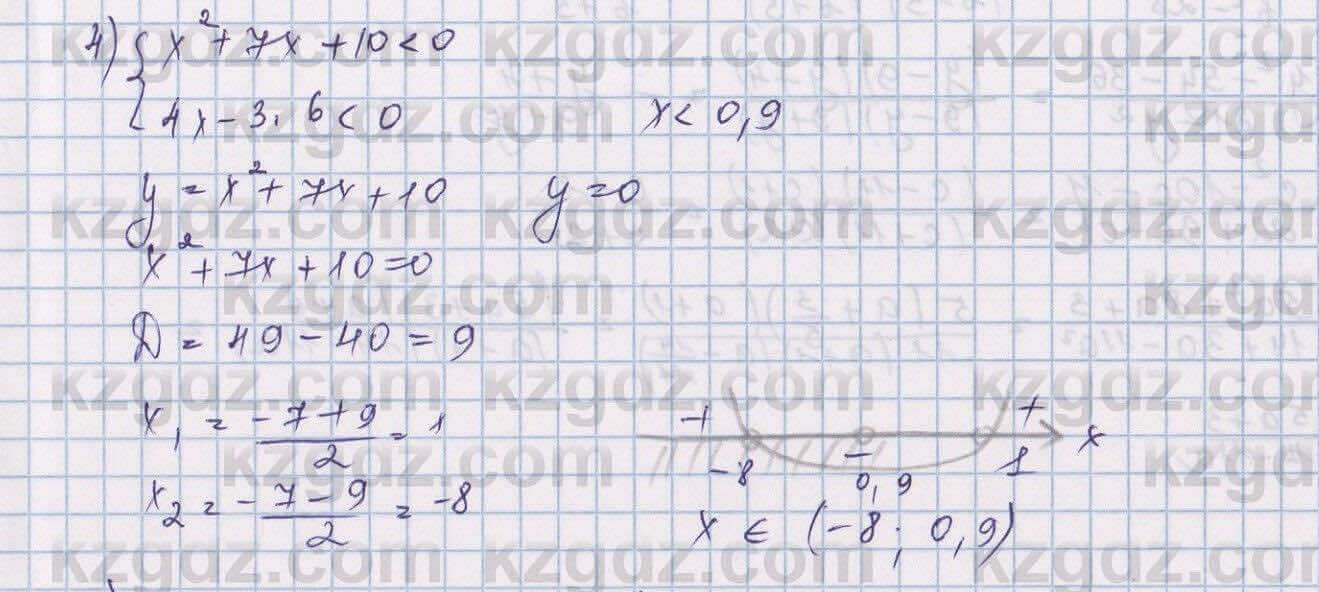 4) { x² + 7x + 10 < 0
4x - 3.6 < 0 x < 0,9
y = x² + 7x + 10 y = 0
x² + 7x + 10 = 0
D = 49 - 40 = 9
x₁ = (-7+9)/2 = 1
x₂ = (-7-9)/2 = -8
+ - + x
-8 0,9 1
x ∈ (-8; 0,9)
kzgdz.com